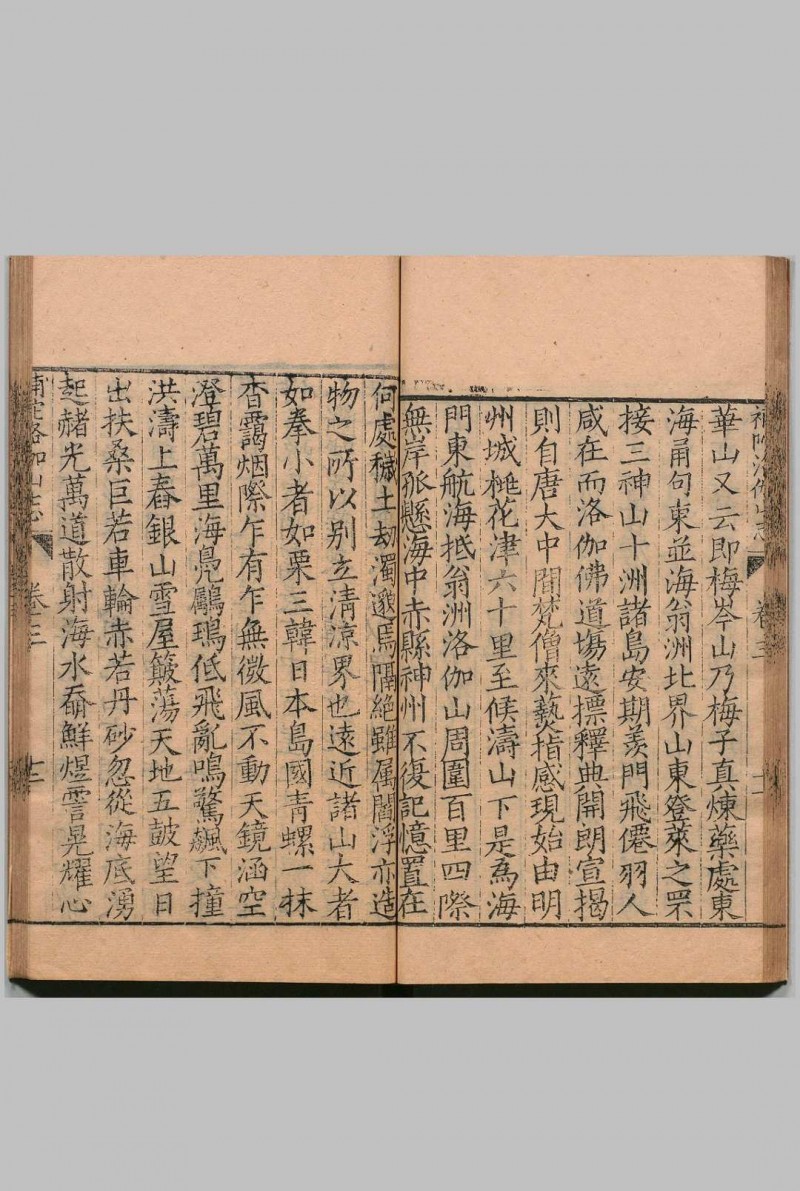 補陀洛伽山志 卷三
華山又云即梅岑山乃梅子真煉藥處東
海甬句東並海翁洲北界山東登萊之罘
接三神山十洲諸島安期羨門飛僊羽人
咸在而洛伽佛道塲遠摽釋典開朗宣揭
則自唐大中間梵僧來爇指感現始由明
州城桃花津六十里至候濤山下是為海
門東航海抵翁洲洛伽山周圍百里四際
無岸孤懸海中赤縣神州不復記憶置在
何處穢土劫濁邈焉隔絶雖属閻浮亦造
物之所以别立清凉界也遠近諸山大者
如拳小者如粟三韓日本島國青螺一抹
杳靄烟際乍有乍無微風不動天鏡涵空
澄碧萬里海鳧鸕鷀低飛亂鳴驚飆下撞
洪濤上舂銀山雪屋簸蕩天地五鼓望日
出扶桑巨若車輪赤若丹砂忽從海底湧
起赭光萬道散射海水奫鮮煜霅晃耀心
補陀洛伽山志 卷三 十二